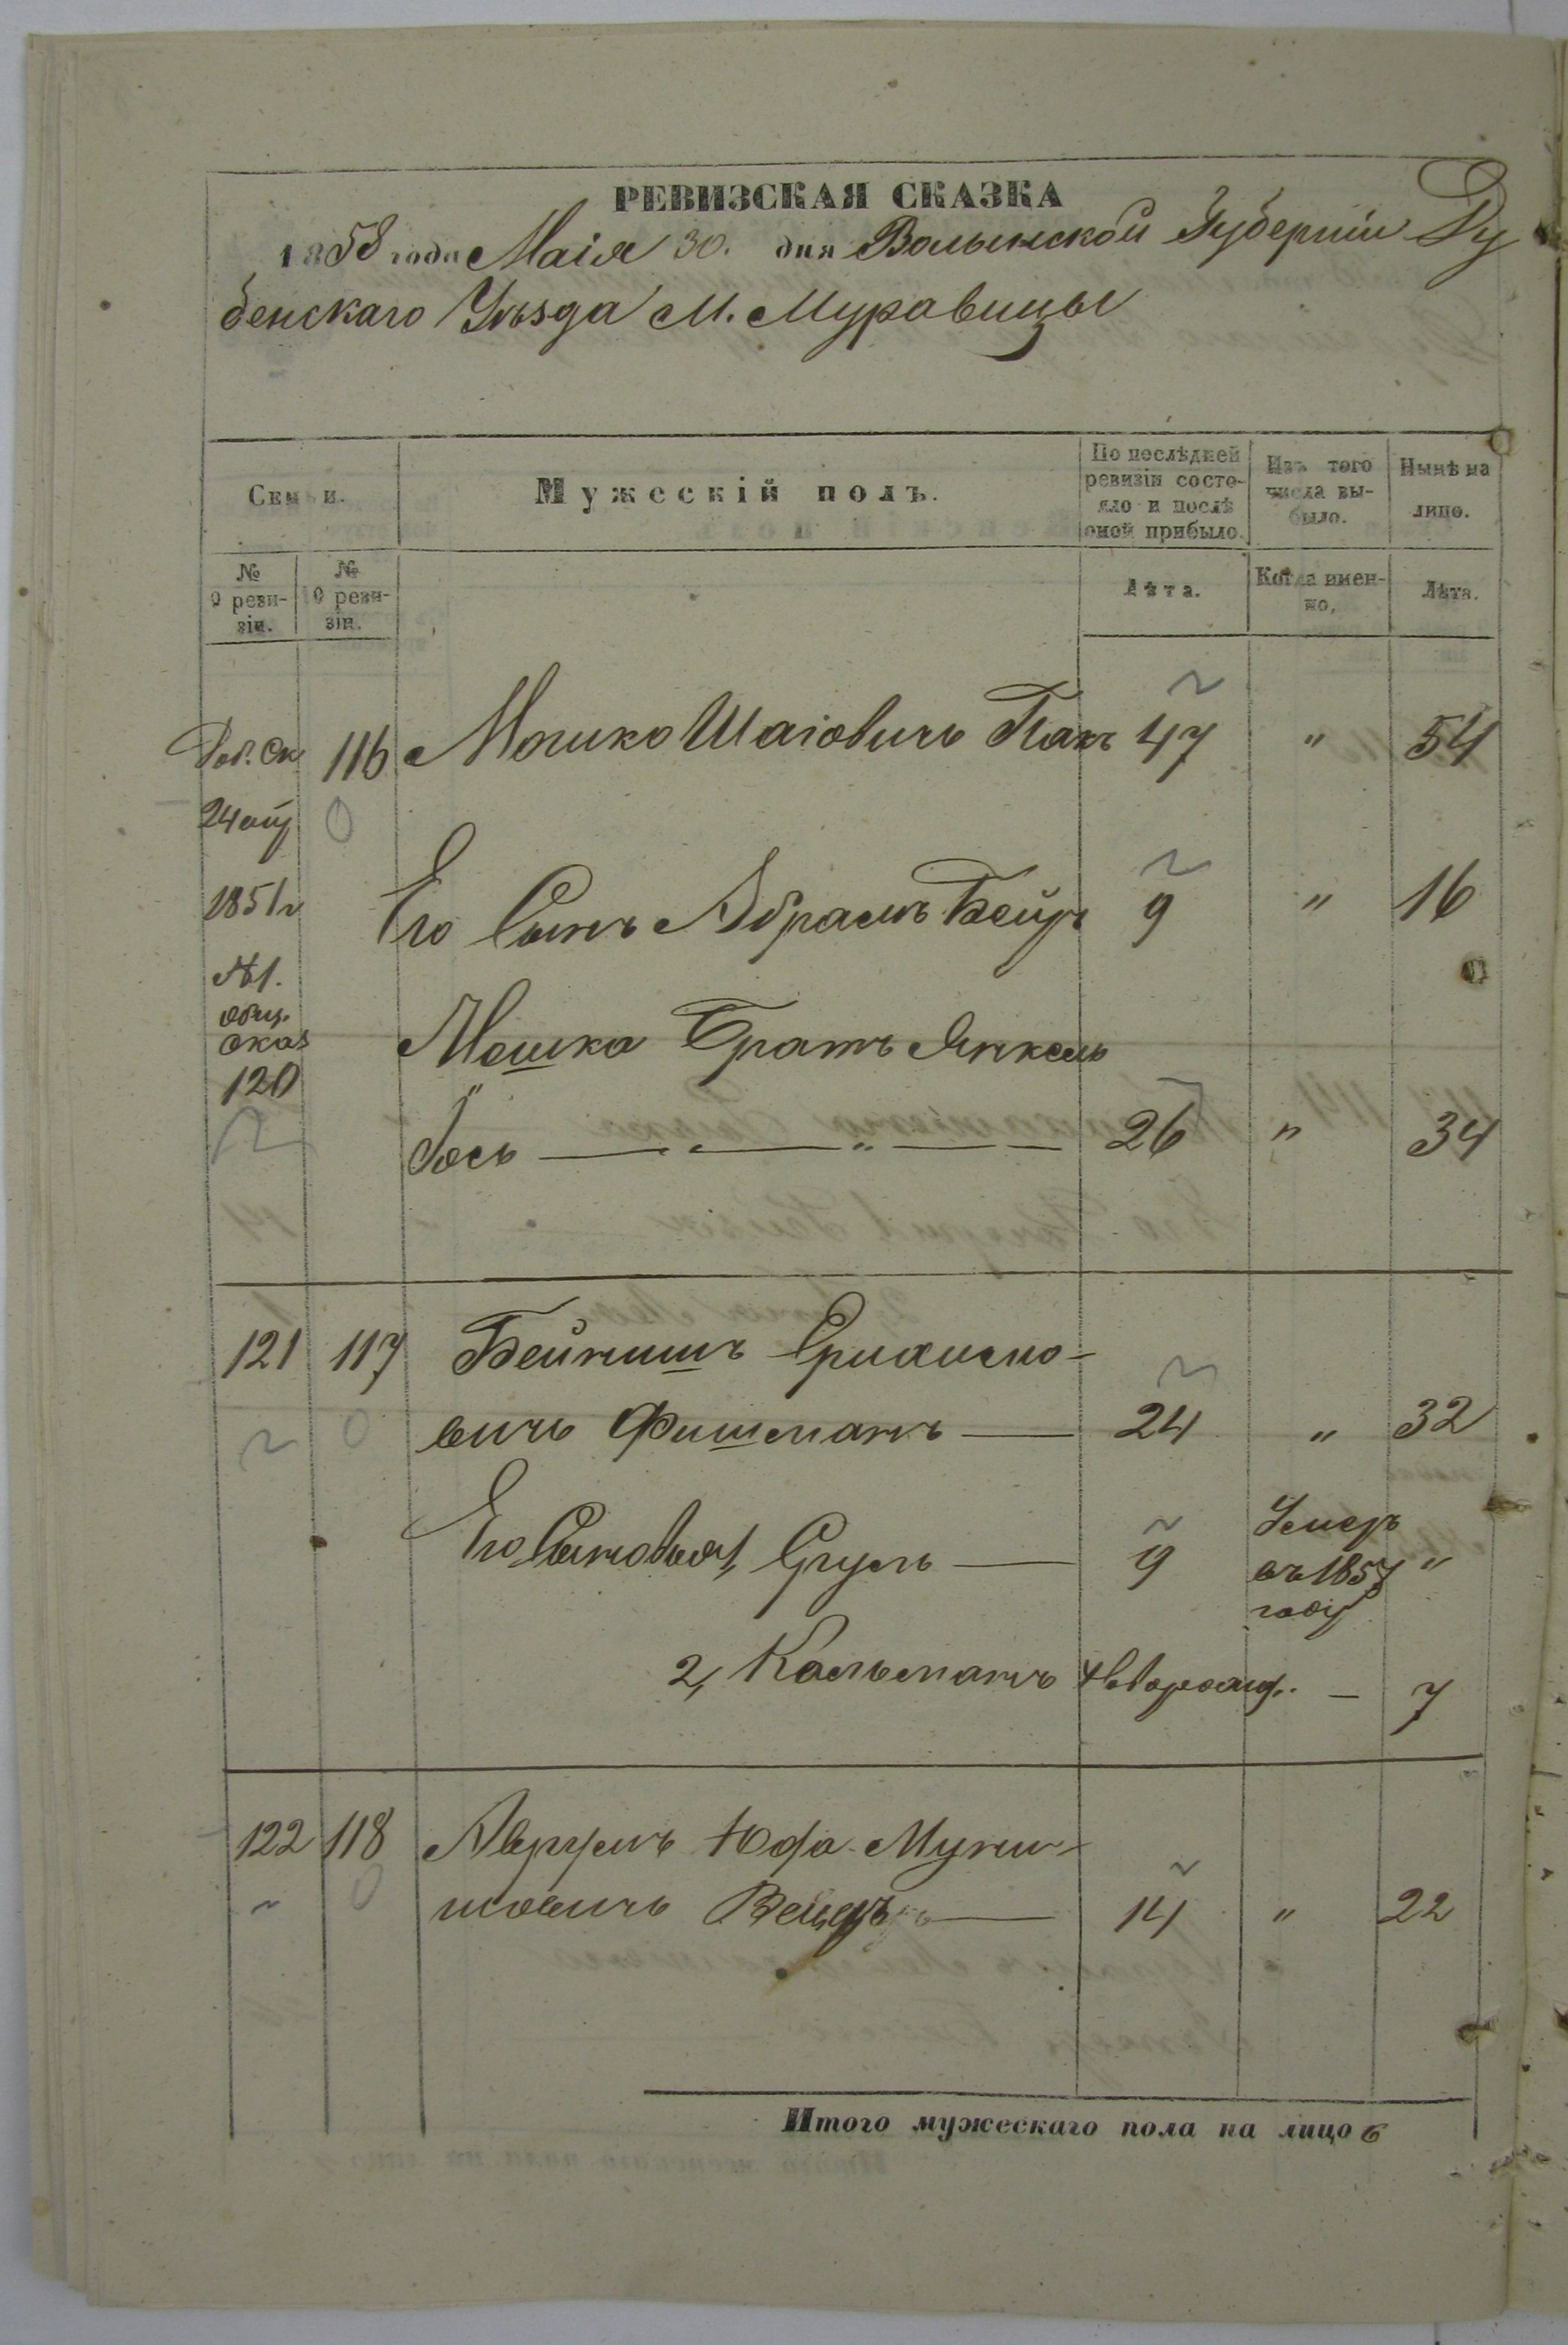 РЕВИЗСКАЯ СКАЗКА
1858 года Маія 30. дня Волынской Губерніи Ду
бенскаго Уѣзда М. Муравицы
Семьи.
Мужескій полъ.
По послѣдней ревизіи состо-
яло и послѣ оной прибыло.
Изъ того числа вы-
было.
Нынѣ на лицо.
№ 9 реви-
зіи.
№ 10 реви-
зіи.
Лѣта.
Когда имен-
но.
Лѣта.
Доб. Ск 116 Мошко Шаіовичъ Пакъ 47 " 54
24 ауг 0
1851 г Его Сынъ Абрамъ Бейръ 9 " 16
№1.
общ.
сказ Мошка Братъ Янкель
120
Іось — " — 26 " 34
121 117 Бейнишъ Срихимо-
0 вичъ Фишманъ — 24 " 32
Его Сыновья 1, Сруль — 9 Умеръ
въ 1857 "
году
2, Кальманъ — 7
122 118 Аврумъ Юфа Муни-
0 шовичъ Вецеръ — 14 " 22
Итого мужескаго пола на лицо 6